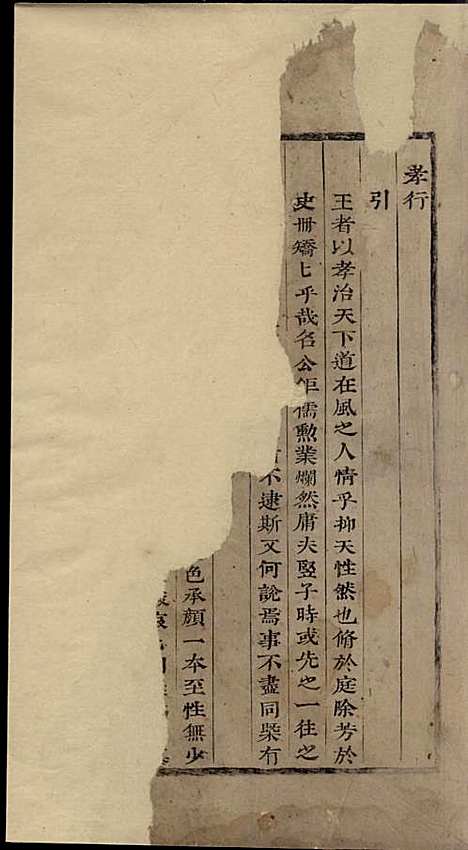 孝行
引
王者以孝治天下道在風之人情乎抑天性然也脩於庭除芳於
史冊矯匕乎哉名公鉅儒勲業爛然庸夫竪子時或先之一往之
不逮斯又何說焉事不盡同槩有
色承顏一本至性無少